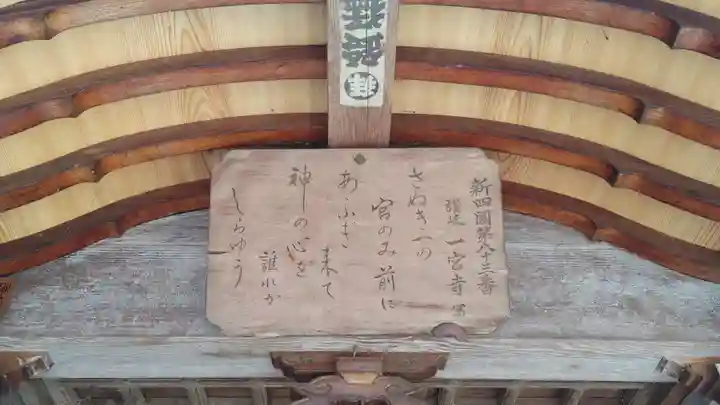 新四國第八十三番
讃岐 一宮寺 写
さぬき一の
宮のみ前に
あふぎ
来て
神の心を
誰れか
しらゆう